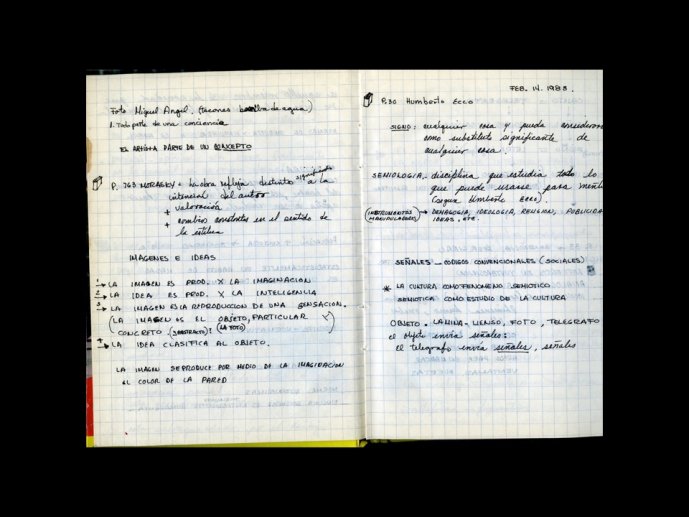 Foto Miguel Angel. (tacones bomba de agua)
1. Todo parte de una conciencia
EL ARTISTA PARTE DE UN CONCEPTO
P. 263 MORAGLY = La obra refleja distinto significado a la
intencion del autor
+ valoración
+ cambios constantes en el sentido de
la estética
IMAGENES E IDEAS
1 → LA IMAGEN ES PROD. X LA IMAGINACION
2 → LA IDEA ES PROD. X LA INTELIGENCIA
3 → LA IMAGEN ES LA REPRODUCCION DE UNA SENSACION.
(LA IMAGEN ES EL OBJETO, PARTICULAR Y)
CONCRETO (ABSTRACTO): (LA FOTO)
4 → LA IDEA CLASIFICA AL OBJETO.
LA IMAGEN SE PRODUCE POR MEDIO DE LA IMAGINACION
EL COLOR DE LA PARED
FEB. 14. 1983.
P.30 Humberto ECCO
SIGNO: cualquier cosa q pueda considerarse
como substituto significante de
cualquier cosa.
SEMIOLOGIA. disciplina que estudia todo lo
que puede usarse para mentir
(segun Umberto Ecco).
(INSTRUMENTOS MANIPULADORES) → DEMAGOGIA, IDEOLOGIA, RELIGION, PUBLICIDA
IDEAS, ETC.
SEÑALES _ CODIGOS CONVENCIONALES (SOCIALES)
* LA CULTURA COMO FENOMENO SEMIOTICO
SEMIOTICA COMO ESTUDIO DE LA CULTURA
OBJETO. LAMINA. LIENSO, FOTO, TELEGRAFO
el objeto envía señales:
el telegrafo envía señales, señales